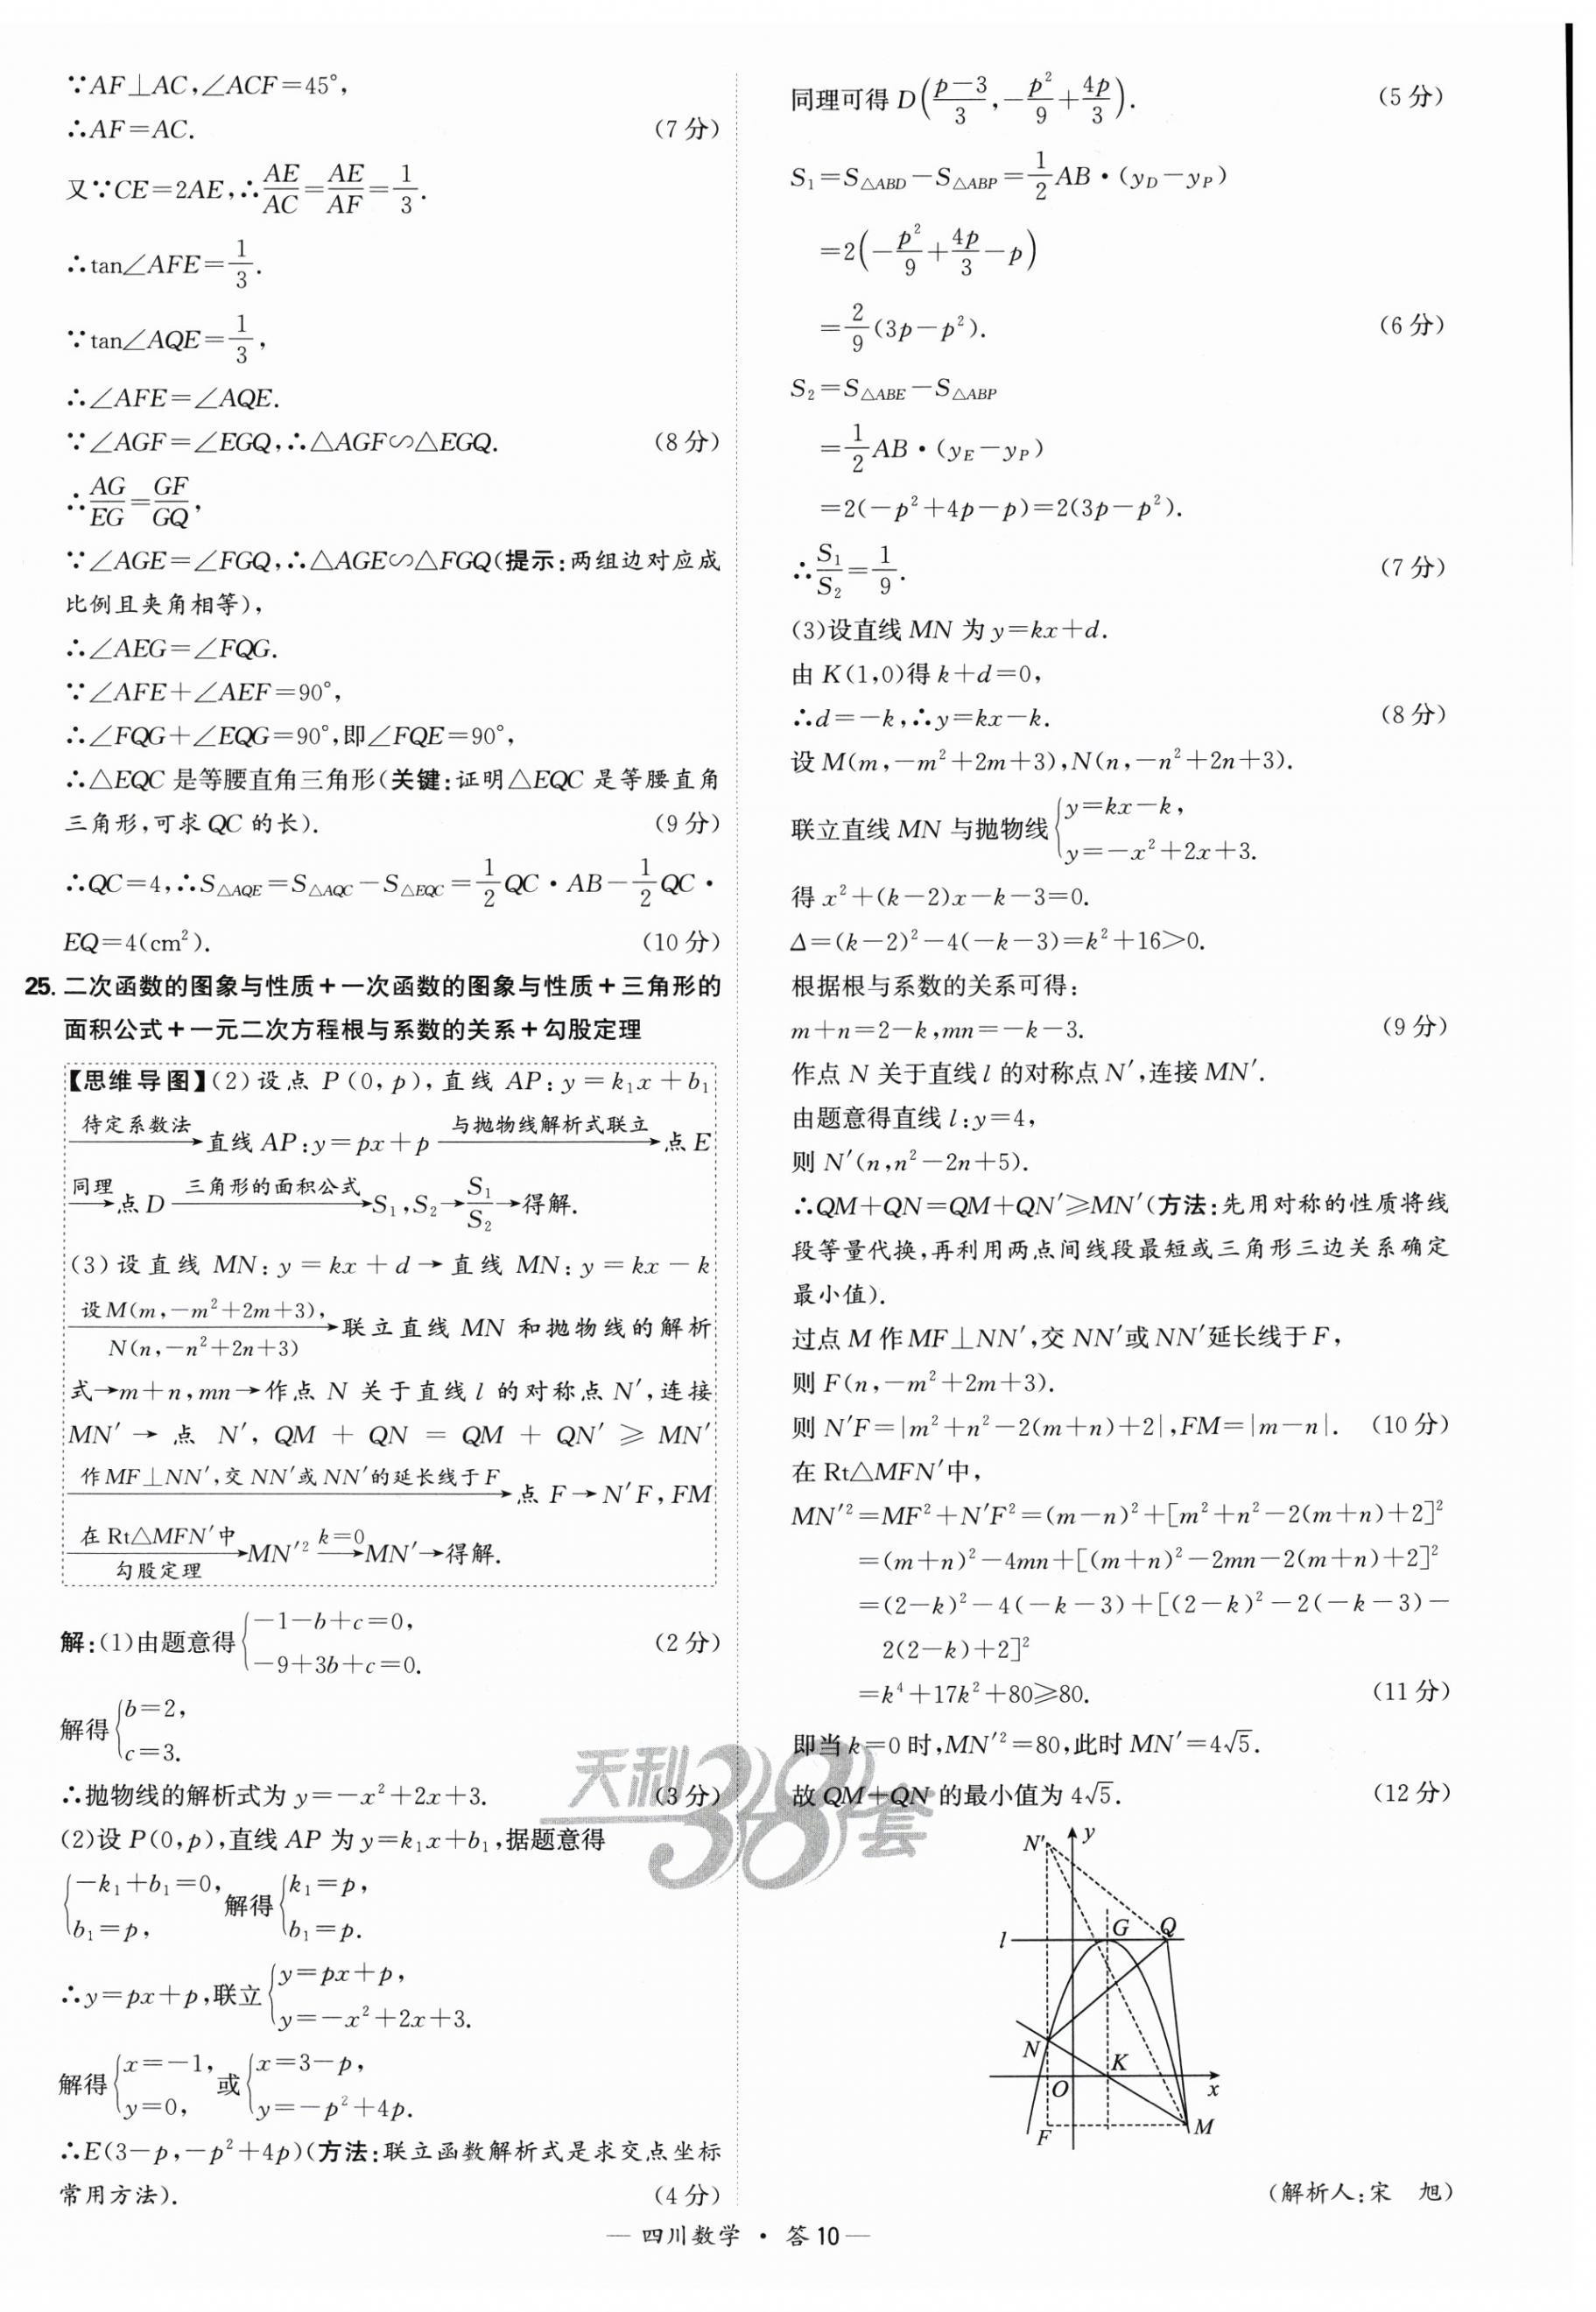 ∵AF⊥AC,∠ACF=45°,
∴AF=AC. (7分)
又∵CE=2AE,∴AE/AC=AE/AF=1/3.
∴tan∠AFE=1/3.
∵tan∠AQE=1/3,
∴∠AFE=∠AQE.
∵∠AGF=∠EGQ,∴△AGF∽△EGQ. (8分)
∴AG/EG=GF/GQ,
∵∠AGE=∠FGQ,∴△AGE∽△FGQ(提示:两组边对应成
比例且夹角相等),
∴∠AEG=∠FQG.
∵∠AFE+∠AEF=90°,
∴∠FQG+∠EQG=90°,即∠FQE=90°,
∴△EQC是等腰直角三角形(关键:证明△EQC是等腰直角
三角形,可求QC的长). (9分)
∴QC=4,∴S△AQE=S△AQC-S△EQC=1/2QC·AB-1/2QC·
EQ=4(cm²). (10分)
25. 二次函数的图象与性质+一次函数的图象与性质+三角形的
面积公式+一元二次方程根与系数的关系+勾股定理
【思维导图】(2)设点P(0,p),直线AP:y=k₁x+b₁
待定系数法→直线AP:y=px+p 与抛物线解析式联立→点E
同理→点D 三角形的面积公式→S₁,S₂→S₁/S₂→得解.
(3)设直线MN:y=kx+d→直线MN:y=kx-k
设M(m,-m²+2m+3),
N(n,-n²+2n+3)→联立直线MN和抛物线的解析
式→m+n,mn→作点N关于直线l的对称点N′,连接
MN′→点N′,QM+QN=QM+QN′≥MN′
作MF⊥NN′,交NN′或NN′的延长线于F→点F→N′F,FM
在Rt△MFN′中 勾股定理→MN′² k=0→MN′→得解.
解:(1)由题意得{-1-b+c=0,
-9+3b+c=0. (2分)
解得{b=2,
c=3.
∴抛物线的解析式为y=-x²+2x+3. (3分)
(2)设P(0,p),直线AP为y=k₁x+b₁,据题意得
{-k₁+b₁=0, 解得{k₁=p,
b₁=p, b₁=p.
∴y=px+p,联立{y=px+p,
y=-x²+2x+3.
解得{x=-1, 或{x=3-p,
y=0, y=-p²+4p.
∴E(3-p,-p²+4p)(方法:联立函数解析式是求交点坐标
常用方法). (4分)
同理可得D((p-3)/3,-p²/9+4p/3). (5分)
S₁=S△ABD-S△ABP=1/2AB·(yD-yP)
=2(-p²/9+4p/3-p)
=2/9(3p-p²). (6分)
S₂=S△ABE-S△ABP
=1/2AB·(yE-yP)
=2(-p²+4p-p)=2(3p-p²).
∴S₁/S₂=1/9. (7分)
(3)设直线MN为y=kx+d.
由K(1,0)得k+d=0,
∴d=-k,∴y=kx-k. (8分)
设M(m,-m²+2m+3),N(n,-n²+2n+3).
联立直线MN与抛物线{y=kx-k,
y=-x²+2x+3.
得x²+(k-2)x-k-3=0.
Δ=(k-2)²-4(-k-3)=k²+16>0.
根据根与系数的关系可得:
m+n=2-k,mn=-k-3. (9分)
作点N关于直线l的对称点N′,连接MN′.
由题意得直线l:y=4,
则N′(n,n²-2n+5).
∴QM+QN=QM+QN′≥MN′(方法:先用对称的性质将线
段等量代换,再利用两点间线段最短或三角形三边关系确定
最小值).
过点M作MF⊥NN′,交NN′或NN′延长线于F,
则F(n,-m²+2m+3).
则N′F=|m²+n²-2(m+n)+2|,FM=|m-n|. (10分)
在Rt△MFN′中,
MN′²=MF²+N′F²=(m-n)²+[m²+n²-2(m+n)+2]²
=(m+n)²-4mn+[(m+n)²-2mn-2(m+n)+2]²
=(2-k)²-4(-k-3)+[(2-k)²-2(-k-3)-
2(2-k)+2]²
=k⁴+17k²+80≥80. (11分)
即当k=0时,MN′²=80,此时MN′=4√5.
故QM+QN的最小值为4√5. (12分)
N′ y
G Q
l
N K
O x
F M
(解析人:宋 旭)
天利38套
— 四川数学 · 答10 —